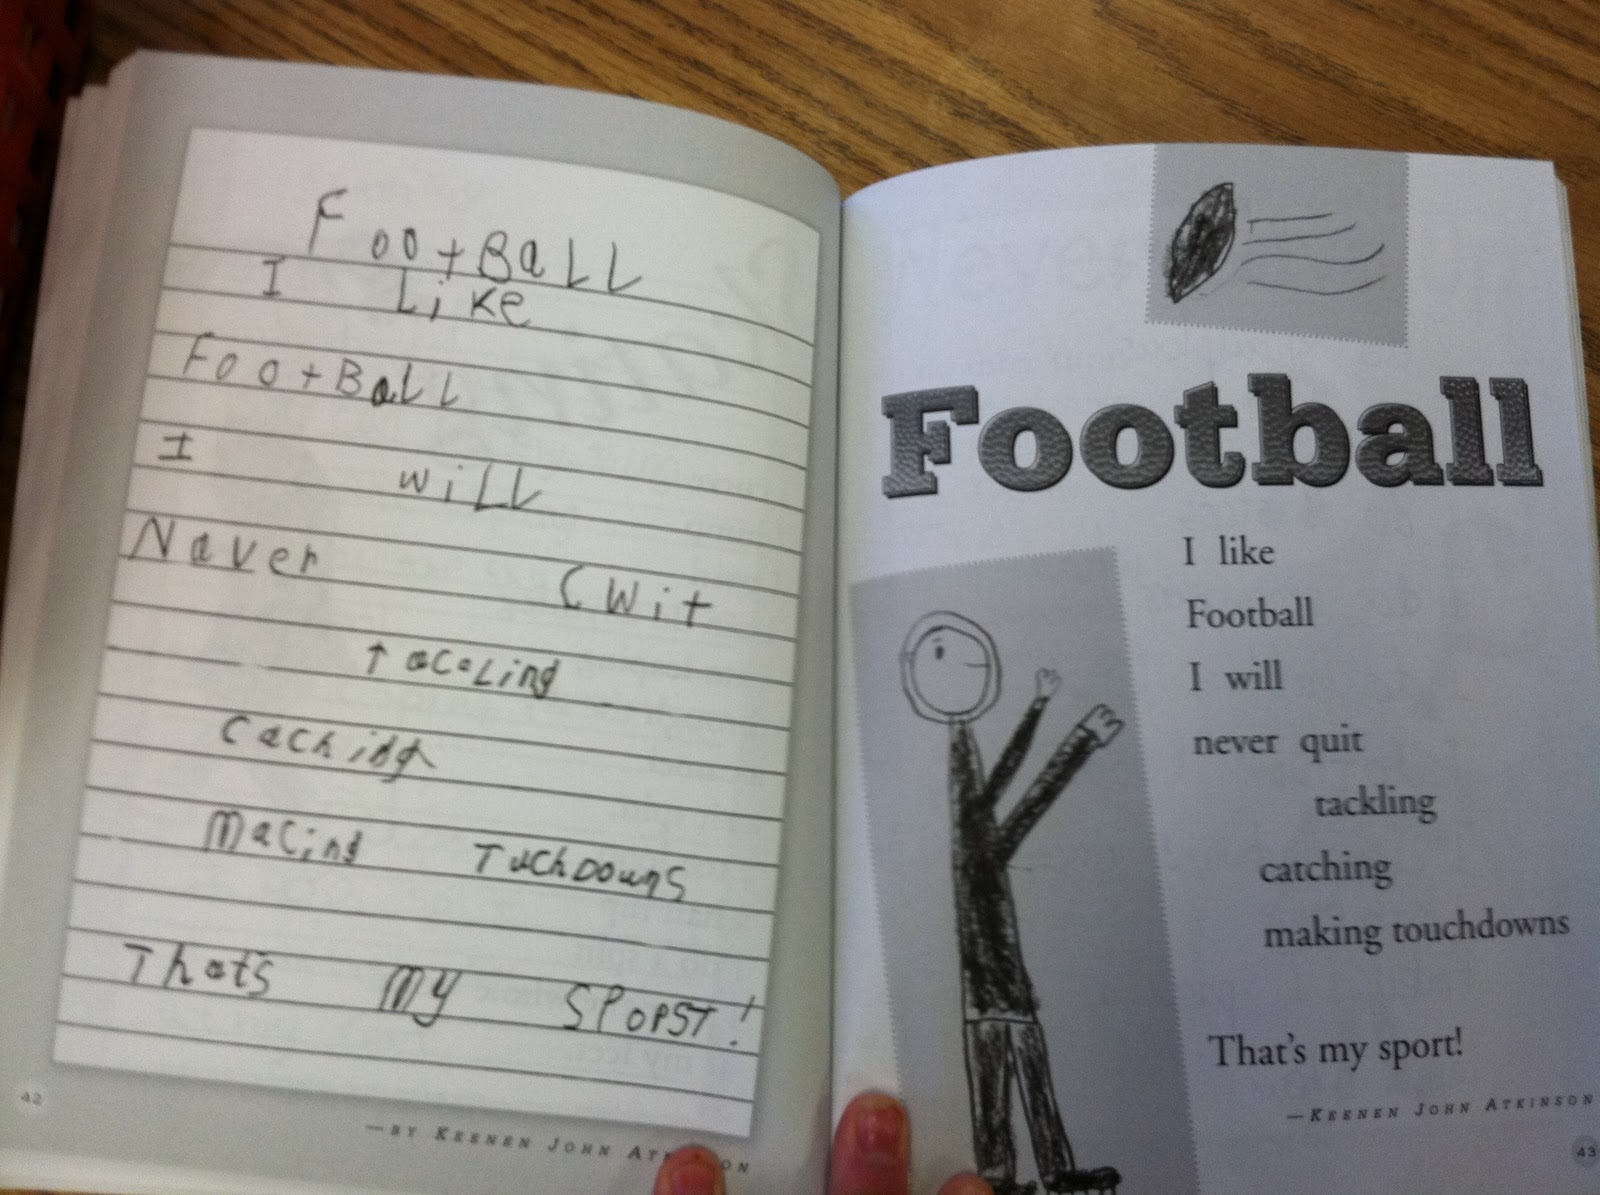 Foo+BaLL
I Like
Foo+BaLL
I wiLL
Naver CWit
tacaLing
Caching
Macing TuchDowns
That's MY SPOPST!
42
—BY KEENEN JOHN AT ON
Football
I like
Football
I will
never quit
tackling
catching
making touchdowns
That's my sport!
—KEENEN JOHN ATKINSON
43